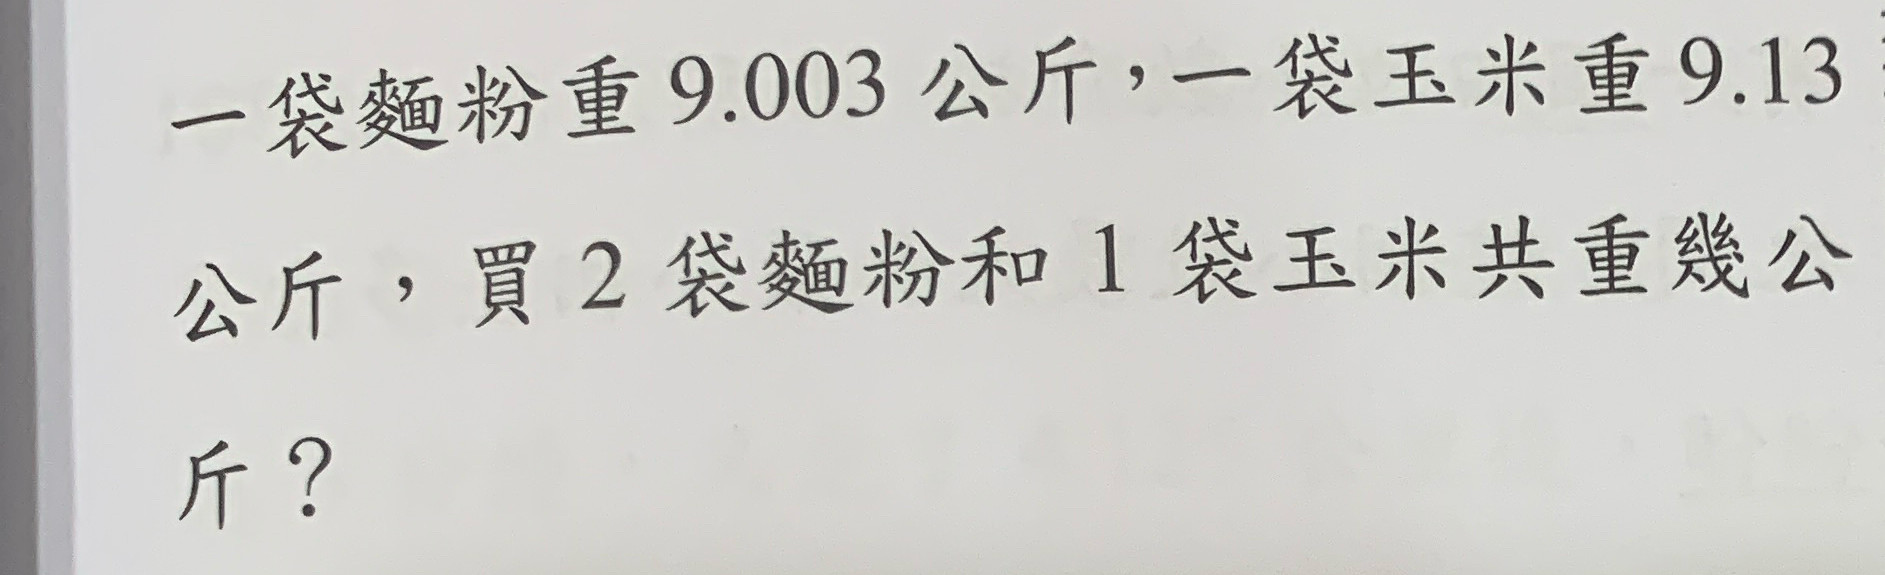 一袋麵粉重9.003公斤，一袋玉米重9.13
公斤，買2袋麵粉和1袋玉米共重幾公
斤？